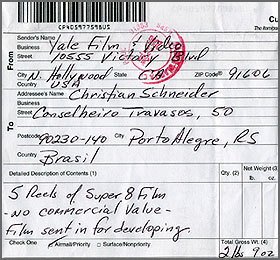 CP405977598US
From
Sender's Name
Business
Yale Film & Video
Street
10555 Victory Blvd
City
N. Hollywood
State
CA
ZIP Code®
91606
Country
USA
Addressee's Name
Christian Schneider
Business
To
Conselheiro Travasos, 50
Postcode
90230-140
City
Porto Alegre, RS
Country
Brasil
Detailed Description of Contents (1)
Qty. (2)
Net Weight (3)
lb.
oz.
5 Reels of Super 8 Film
- No commercial value -
Film sent in for developing.
Check One
Airmail/Priority
Surface/Nonpriority
Total Gross Wt. (4)
2 lbs 9 oz